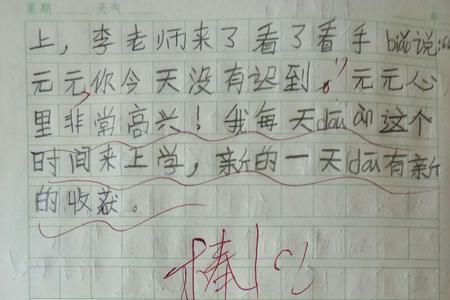 星期 天气 年
上，李老师来了看了看手biǎo说：“
元元，你今天没有迟到。”元元心
里非常高兴！我每天dāu àn这个
时间来上学，新的一天dāu有新
的收获。
棒！